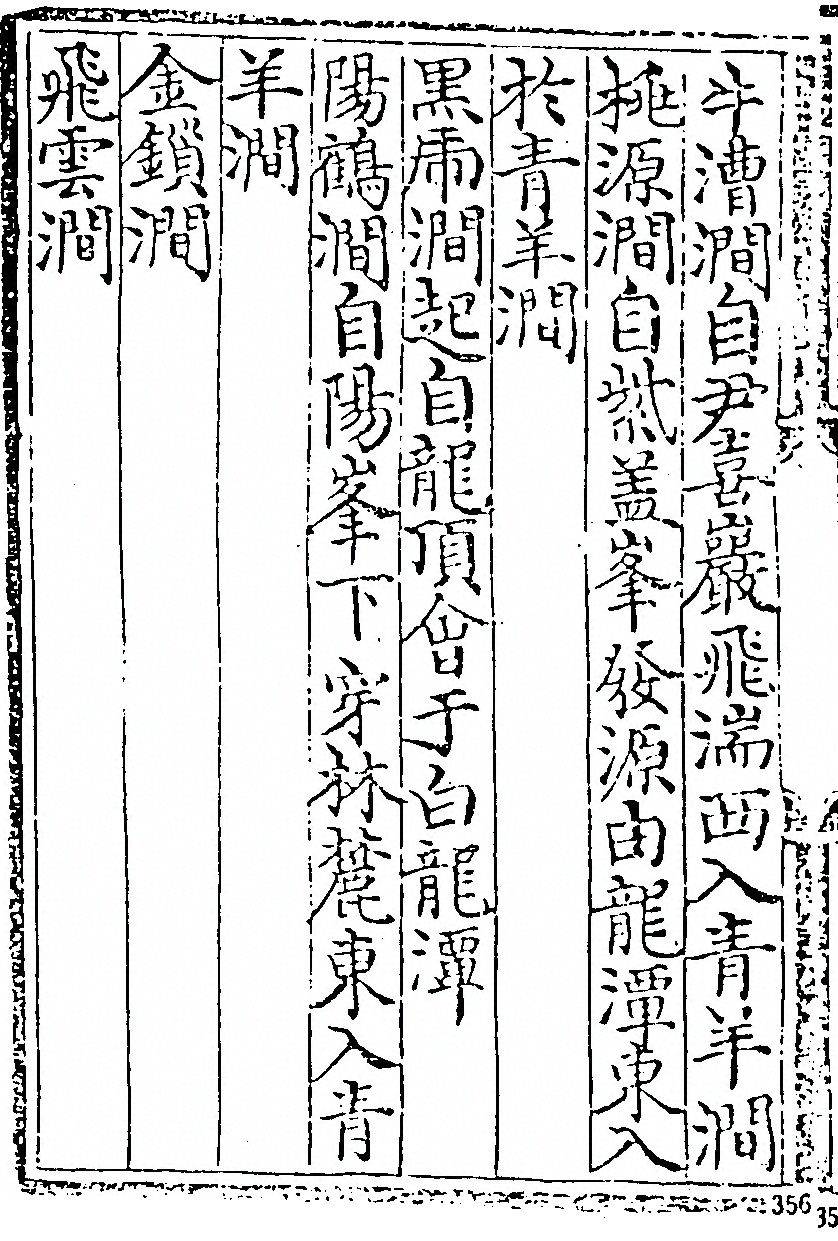 牛漕澗自尹喜巖飛湍西入青羊澗
桃源澗自紫蓋峯發源由龍潭東入
於青羊澗
黑虎澗起自龍頂會于白龍潭
陽鶴澗自陽峯下穿林麓東入青
羊澗
金鎖澗
飛雲澗
356
35